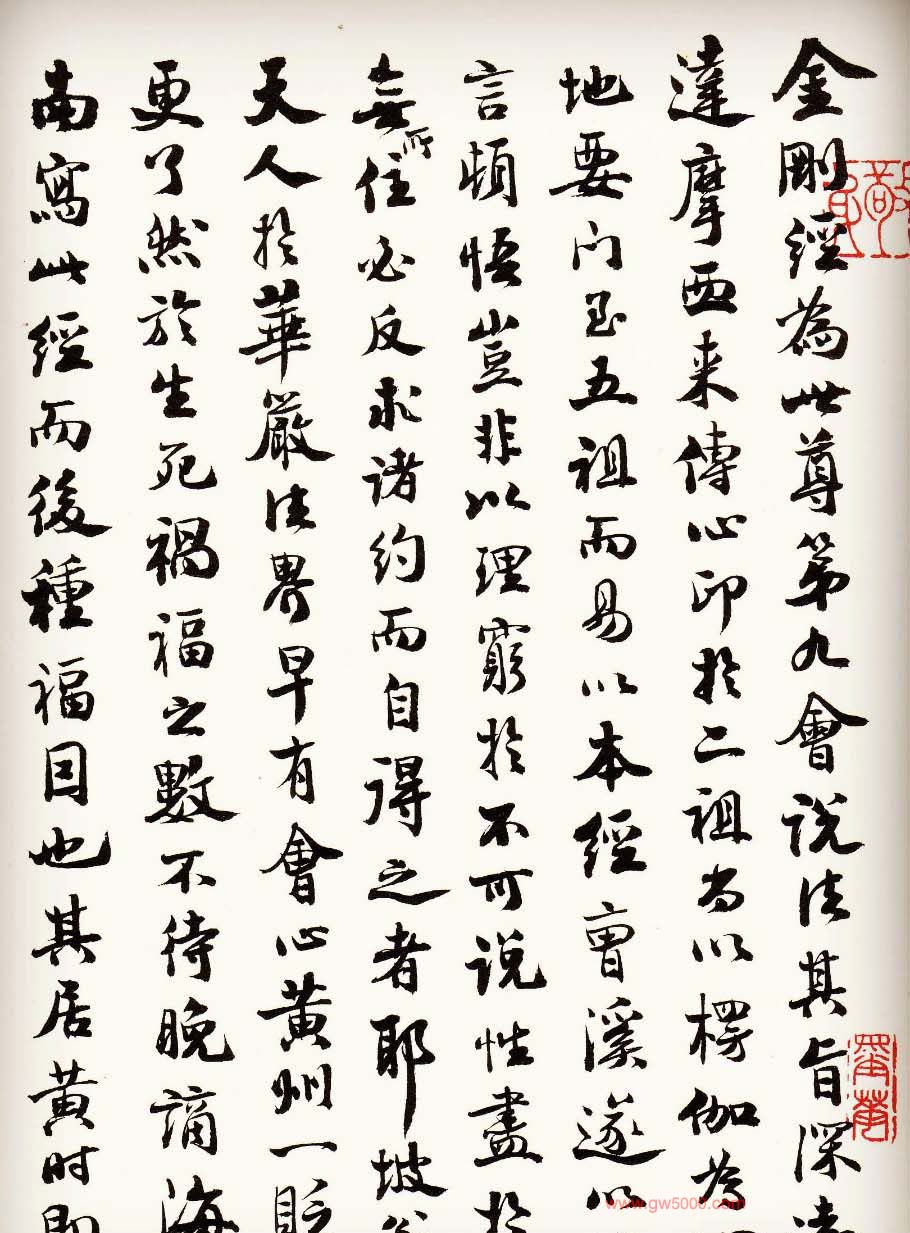 金剛經為世尊第九會說法其旨深遠
達摩西來傳心印於二祖尚以楞伽為
地要门至五祖而易以本經曹溪遂以
言頓悟豈非以理窮於不可說性盡於
無所住必反求諸約而自得之者耶坡公
天人於華嚴法界早有會心黃州一貶
更了然於生死禍福之數不待晚謫海
南寫此經而後種福田也其居黃时即
www.gw5000.com